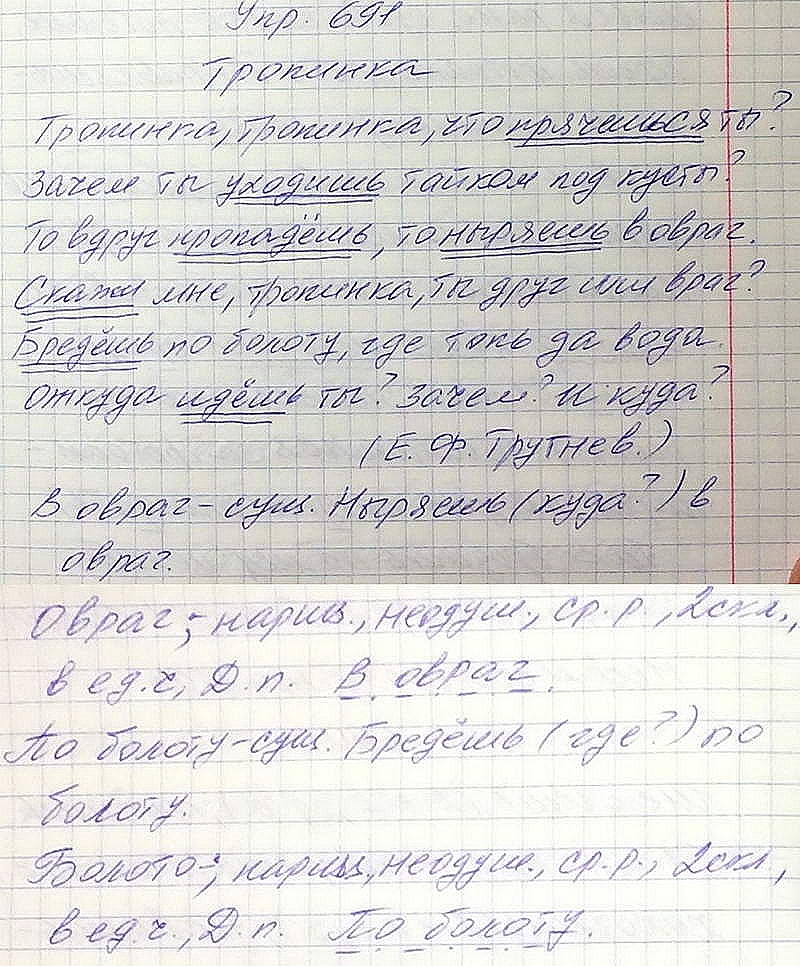 Упр. 691
Тропинка
Тропинка, тропинка, что прячешься ты?
Зачем ты уходишь тайком под кусты?
То вдруг пропадёшь, то ныряешь в овраг.
Скажи мне, тропинка, ты друг или враг?
Бредёшь по болоту, где топь да вода.
Откуда идёшь ты? Зачем? И куда?
(Е. Ф. Трутнев.)
В овраг - сущ. Ныряешь (куда?) в
овраг.
Овраг-; нариц., неодуш., ср.р., 2скл.,
в ед.ч., Д.п. В овраг.
По болоту - сущ. Бредёшь (где?) по
болоту.
Болото-; нариц., неодуш., ср.р., 2скл,
в ед.ч., Д.п. По болоту.